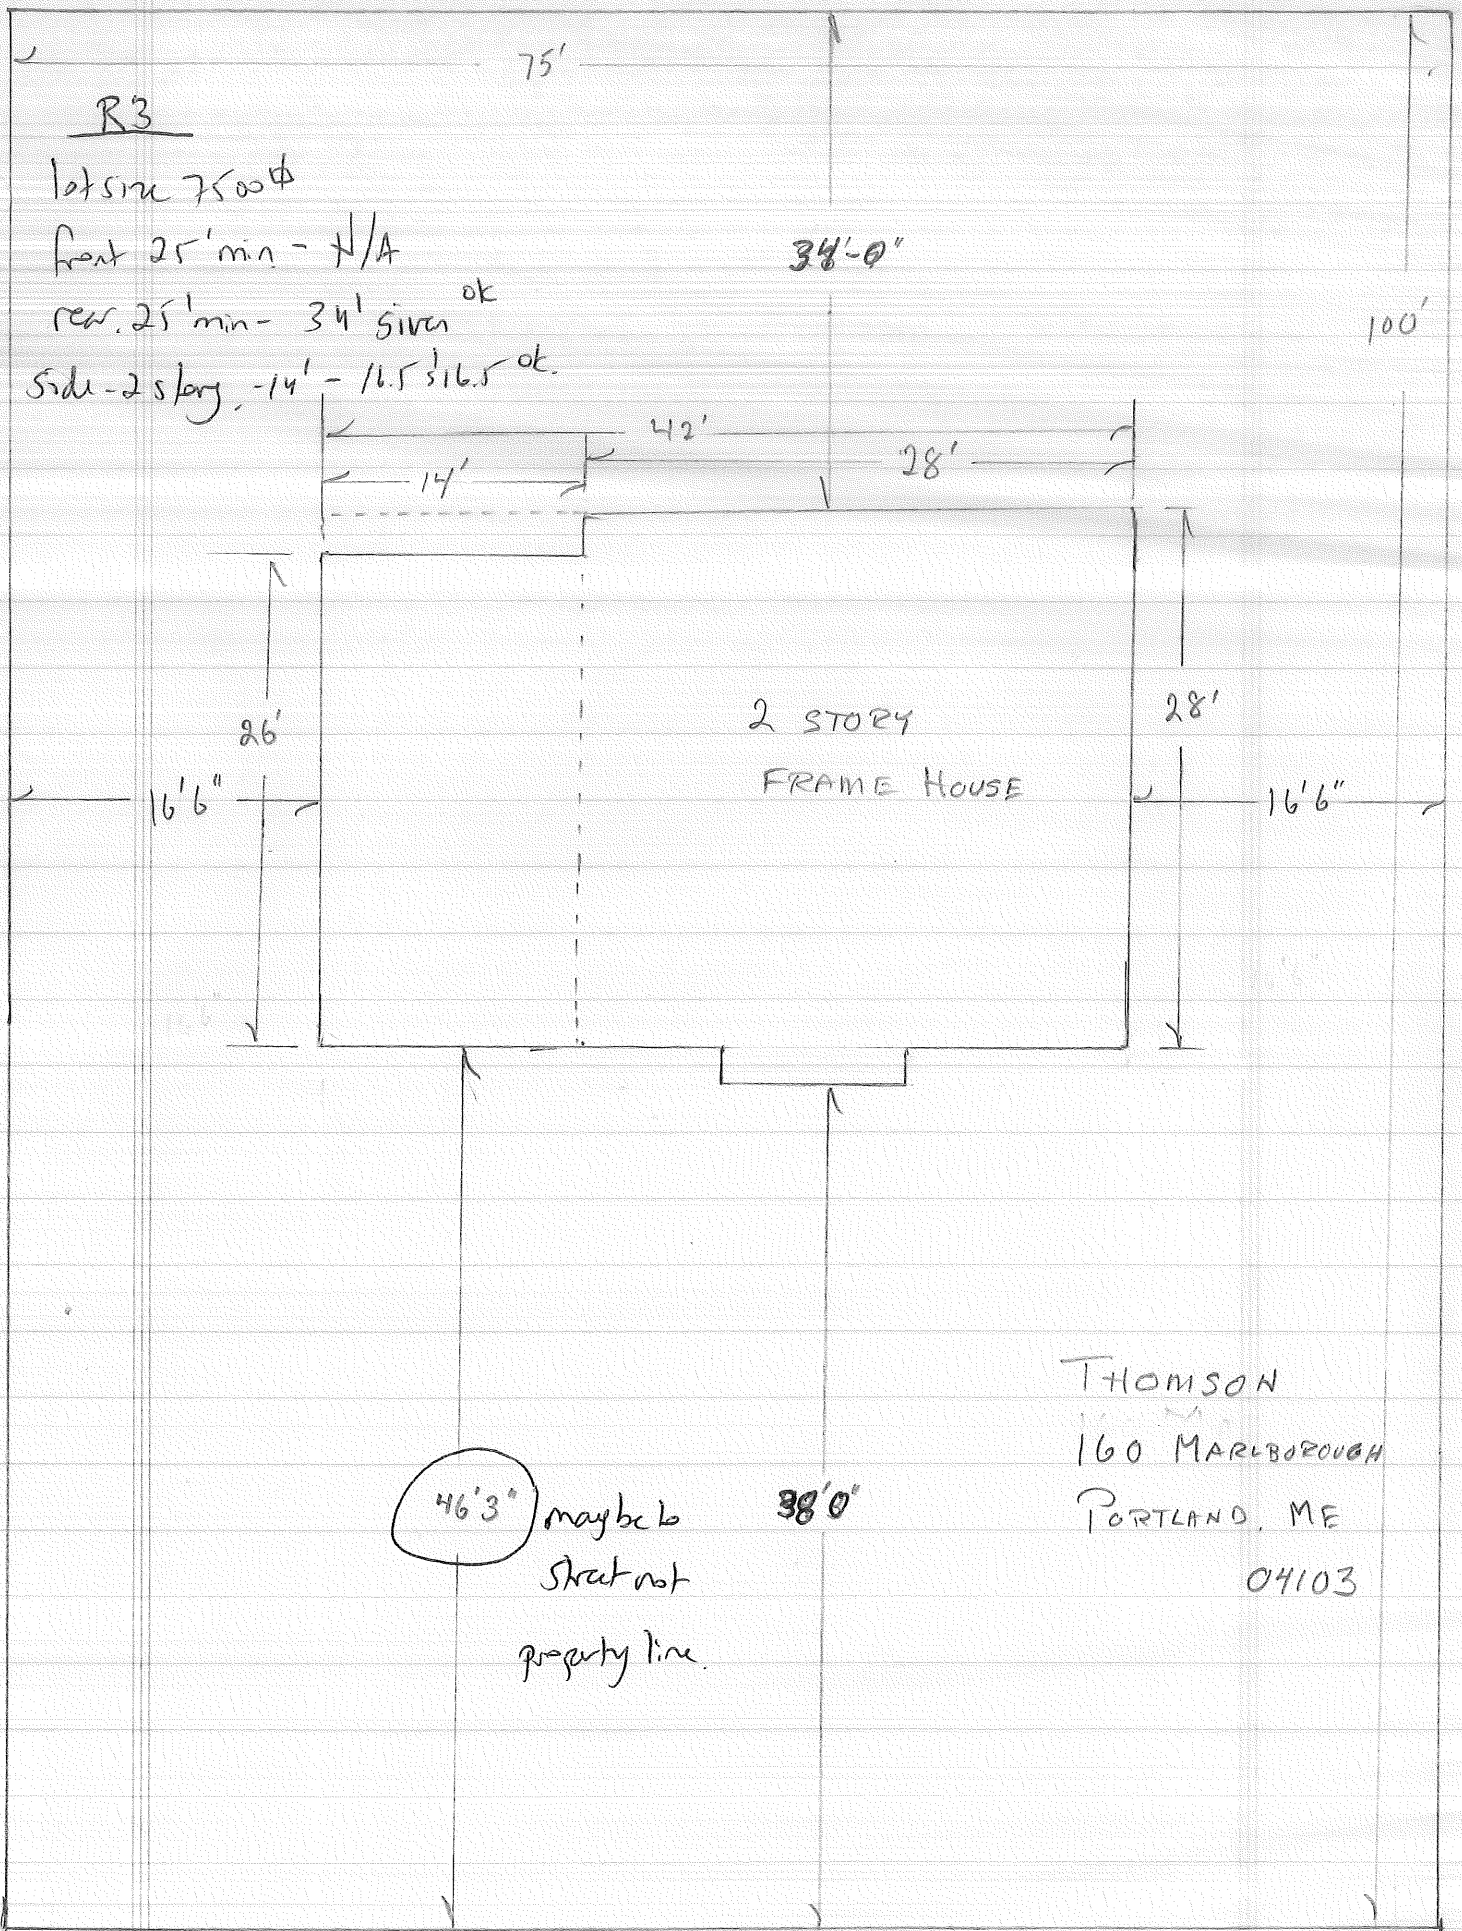 75'
R3
lot size 7500⌀
front 25' min - N/A
rear. 25' min - 34' given ok
side - 2 story. - 14' - 16.5' & 16.5 ok.
34'-0"
100'
42'
14'
28'
26'
28'
2 STORY
FRAME HOUSE
16'6"
16'6"
46'3" maybe to
street not
property line.
38'0"
THOMSON
160 MARLBOROUGH
PORTLAND, ME
04103